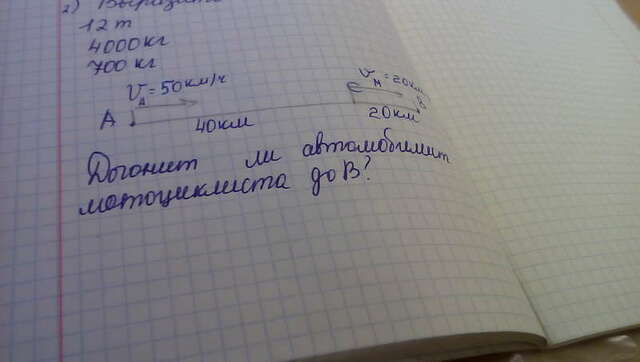 2) Вырази
12 т
4000 кг
700 кг
VА = 50 км/ч
Vм = 20 км
А
С
В
40 км
20 км
Догонит ли автомобилист
мотоциклиста до В?